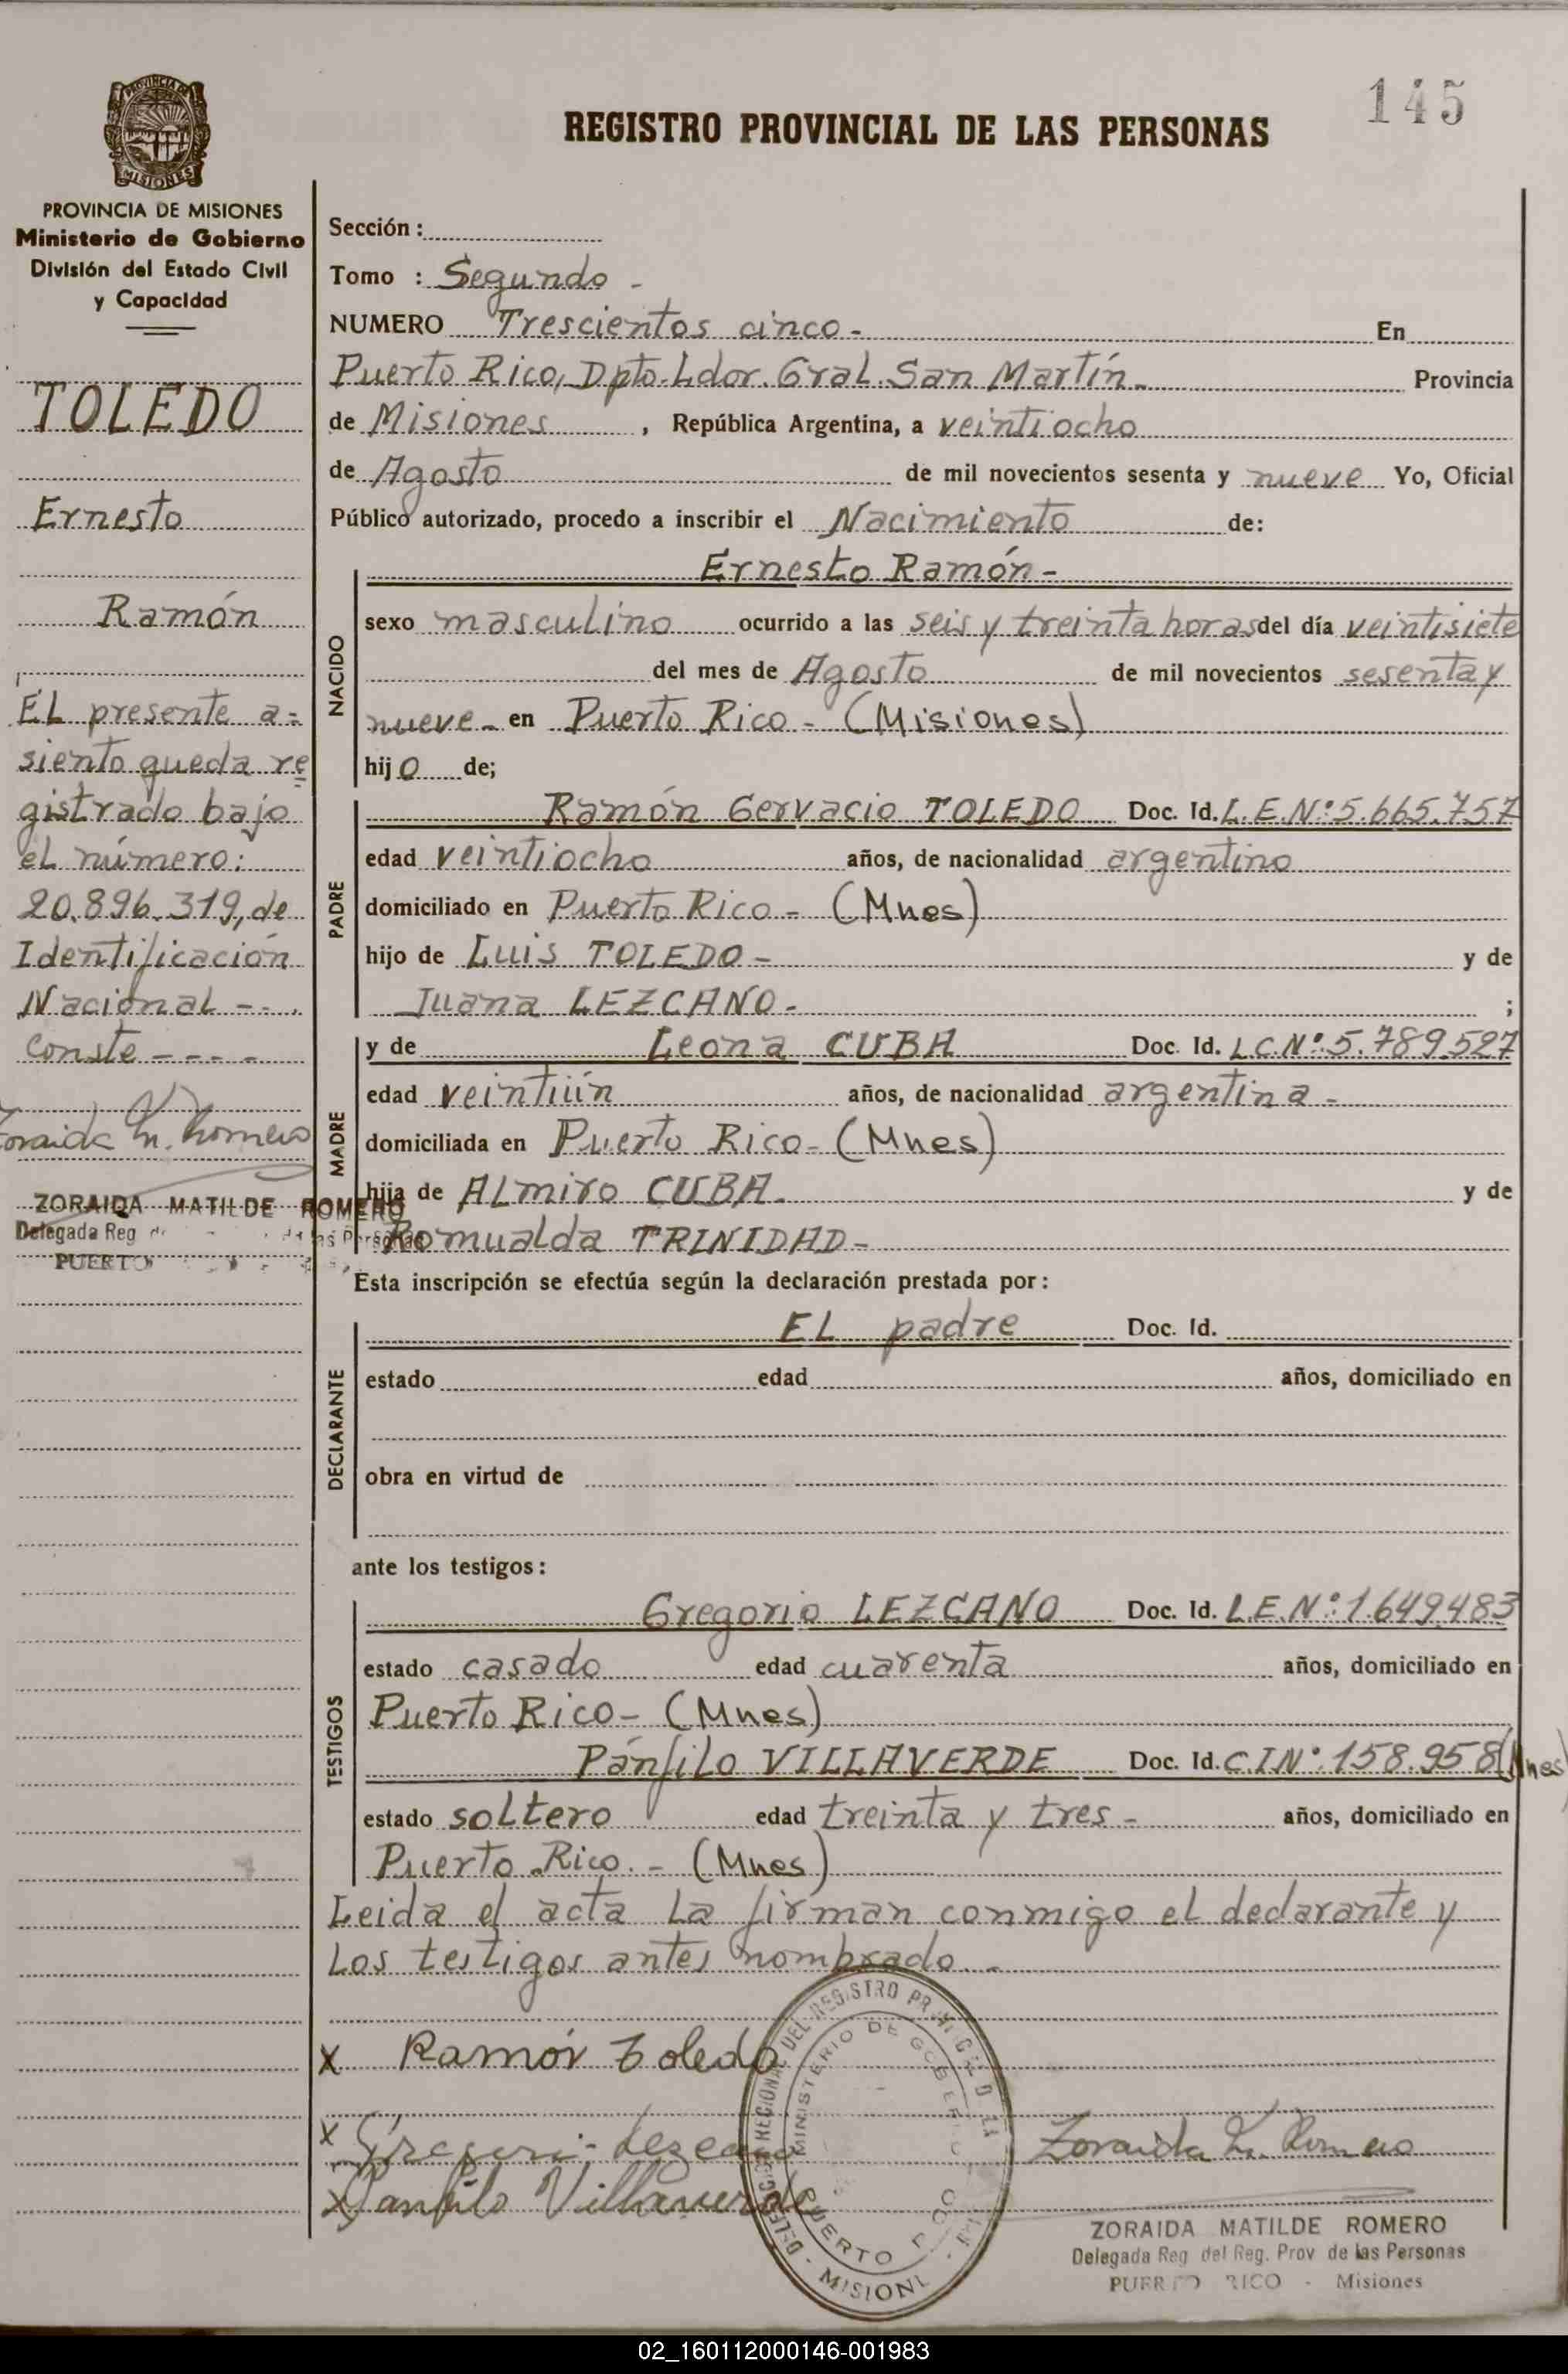 145
REGISTRO PROVINCIAL DE LAS PERSONAS
PROVINCIA DE
MISIONES
PROVINCIA DE MISIONES
Ministerio de Gobierno
División del Estado Civil
y Capacidad
TOLEDO
Ernesto
Ramón
EL presente a=
siento queda re=
gistrado bajo
el número:
20.896.319, de
Identificación
Nacional --.
Conste ----
Zoraida M. Romero
ZORAIDA MATILDE ROMERO
Delegada Reg de las Personas
PUERTO
Sección :
Tomo : Segundo -
NUMERO Trescientos cinco - En
Puerto Rico, Dpto. Ldor. Gral. San Martín - Provincia
de Misiones , República Argentina, a veintiocho
de Agosto de mil novecientos sesenta y nueve Yo, Oficial
Público autorizado, procedo a inscribir el Nacimiento de:
NACIDO
Ernesto Ramón -
sexo masculino ocurrido a las seis y treinta horas del día veintisiete
del mes de Agosto de mil novecientos sesenta y
nueve - en Puerto Rico - (Misiones)
hijo de;
PADRE
Ramón Gervacio TOLEDO Doc. Id. L.E.Nº:5.665.757
edad veintiocho años, de nacionalidad argentino
domiciliado en Puerto Rico - (Mnes)
hijo de Luis TOLEDO - y de
Juana LEZCANO - ;
MADRE
y de Leona CUBA Doc. Id. L.C.Nº:5.789.527
edad veintiún años, de nacionalidad argentina -
domiciliada en Puerto Rico - (Mnes)
hija de ALmiro CUBA. y de
Romualda TRINIDAD -
Esta inscripción se efectúa según la declaración prestada por :
DECLARANTE
EL padre Doc. Id.
estado edad años, domiciliado en
obra en virtud de
ante los testigos :
TESTIGOS
Gregorio LEZCANO Doc. Id. L.E.Nº:1.649.483
estado casado edad cuarenta años, domiciliado en
Puerto Rico - (Mnes)
Pánfilo VILLAVERDE Doc. Id. C.I.Nº:158.958 (Mnes)
estado soltero edad treinta y tres - años, domiciliado en
Puerto Rico. - (Mnes)
Leida el acta La firman conmigo el declarante y
Los testigos antes nombrado. -
x Ramón Toledo
x Gregori- Lezcano
x Panfilo Villaverde
DELEGACION REGIONAL DEL REGISTRO
MINISTERIO DE GOBIERNO
PUERTO RICO
MISIONES
Zoraida M. Romero
ZORAIDA MATILDE ROMERO
Delegada Reg del Reg. Prov de las Personas
PUERTO RICO - Misiones
02_160112000146-001983